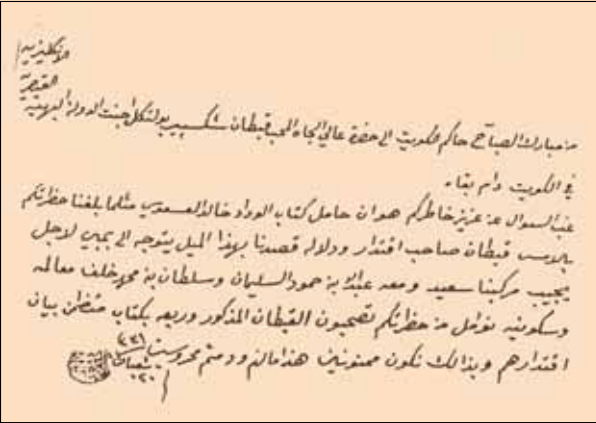 من مبارك الصباح حاكم الكويت الى حضرة عالي الجاه المحب قبطان شكسبير بولتكل اجنت الدولة البهية القيصرية الانكليزية
في الكويت دام بقاه
غب السوال عن عزيز خاطركم هو ان حامل كتاب الوداد خالد العسعوسي مثلما بلغنا حظرتكم
بالامس قبطان صاحب اقتدار ودلاله قصدنا بهذا الميل يتوجه الى بمبي لاجل
يجيب مركبنا سعيد ومعه عبدالله بن حمود السليمان وسلطان بن محمد خلف معالمه
وسكونيه نوامل من حظرتكم تصحبون القبطان المذكور وربعه بكتاب متظمن بيان
اقتدارهم وبذالك نكون ممنونين هذا مالزم ودمتم محروسين
شعبان